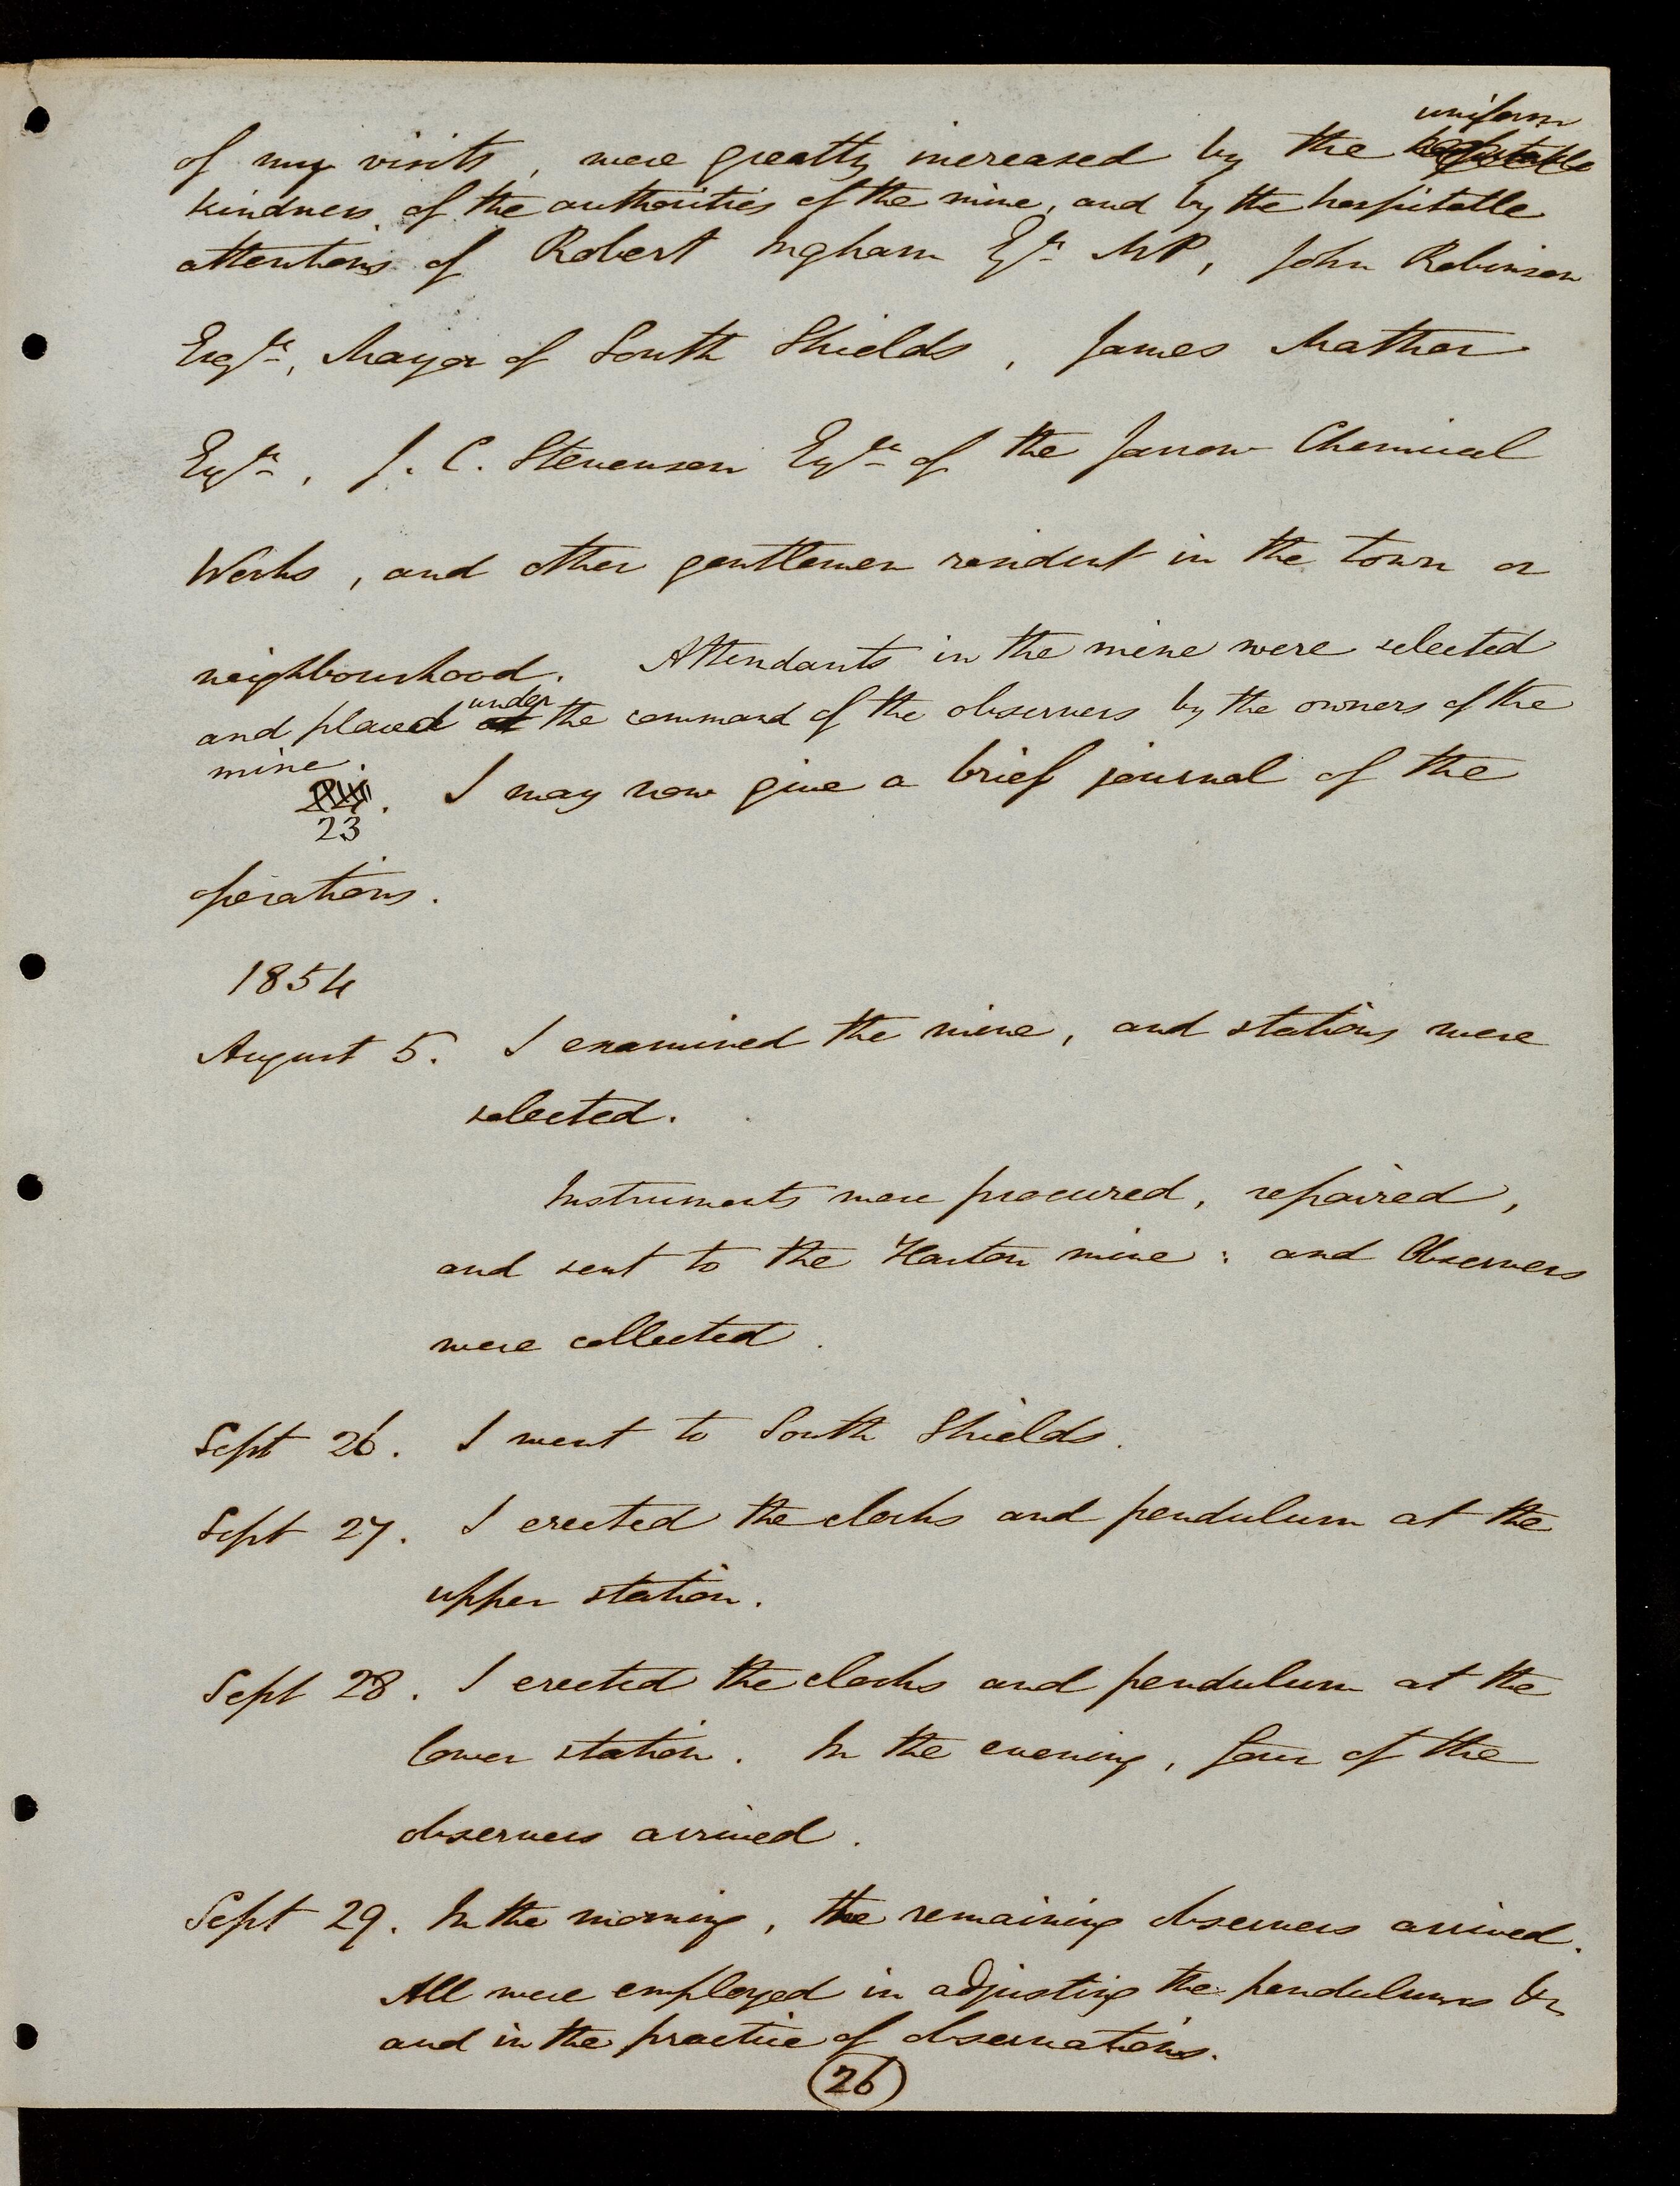 uniform
of my visits, were greatly increased by the hospitable
kindness of the authorities of the mine, and by the hospitable
attentions of Robert Ingham Esqre MP, John Robinson
Esqre, Mayor of South Shields, James Mather
Esqre, J. C. Stevenson Esqre of the Jarrow Chemical
Works, and other gentlemen resident in the town or
neighbourhood. Attendants in the mine were selected
under
and placed at the command of the observers by the owners of the
mine.
I may now give a brief journal of the
23
operations.
1854
August 5. I examined the mine, and stations were
selected.
Instruments were procured, repaired,
and sent to the Harton mine: and Observers
were collected.
Sept 26. I went to South Shields.
Sept 27. I erected the clocks and pendulum at the
upper station.
Sept 28. I erected the clocks and pendulum at the
lower station. In the evening, four of the
observers arrived.
Sept 29. In the morning, the remaining observers arrived.
All were employed in adjusting the pendulums &c
and in the practice of observations.
26